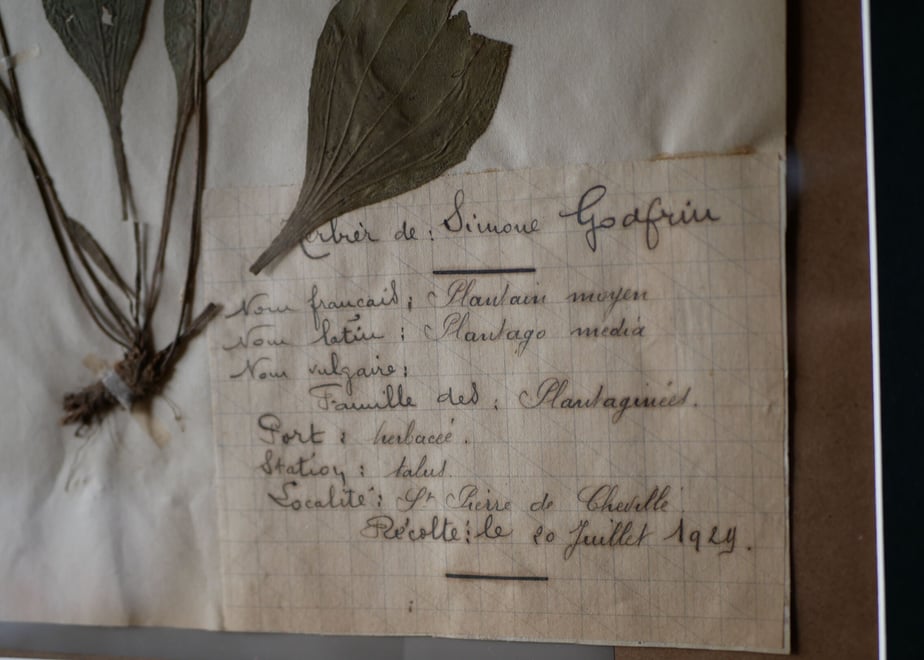 Herbier de : Simone Godfrin
Nom français : Plantain moyen
Nom latin : Plantago media
Nom vulgaire :
Famille des : Plantaginées.
Port : herbacé.
Station : talus.
Localité : St Pierre de Chevillé
Récolté : le 20 Juillet 1929.